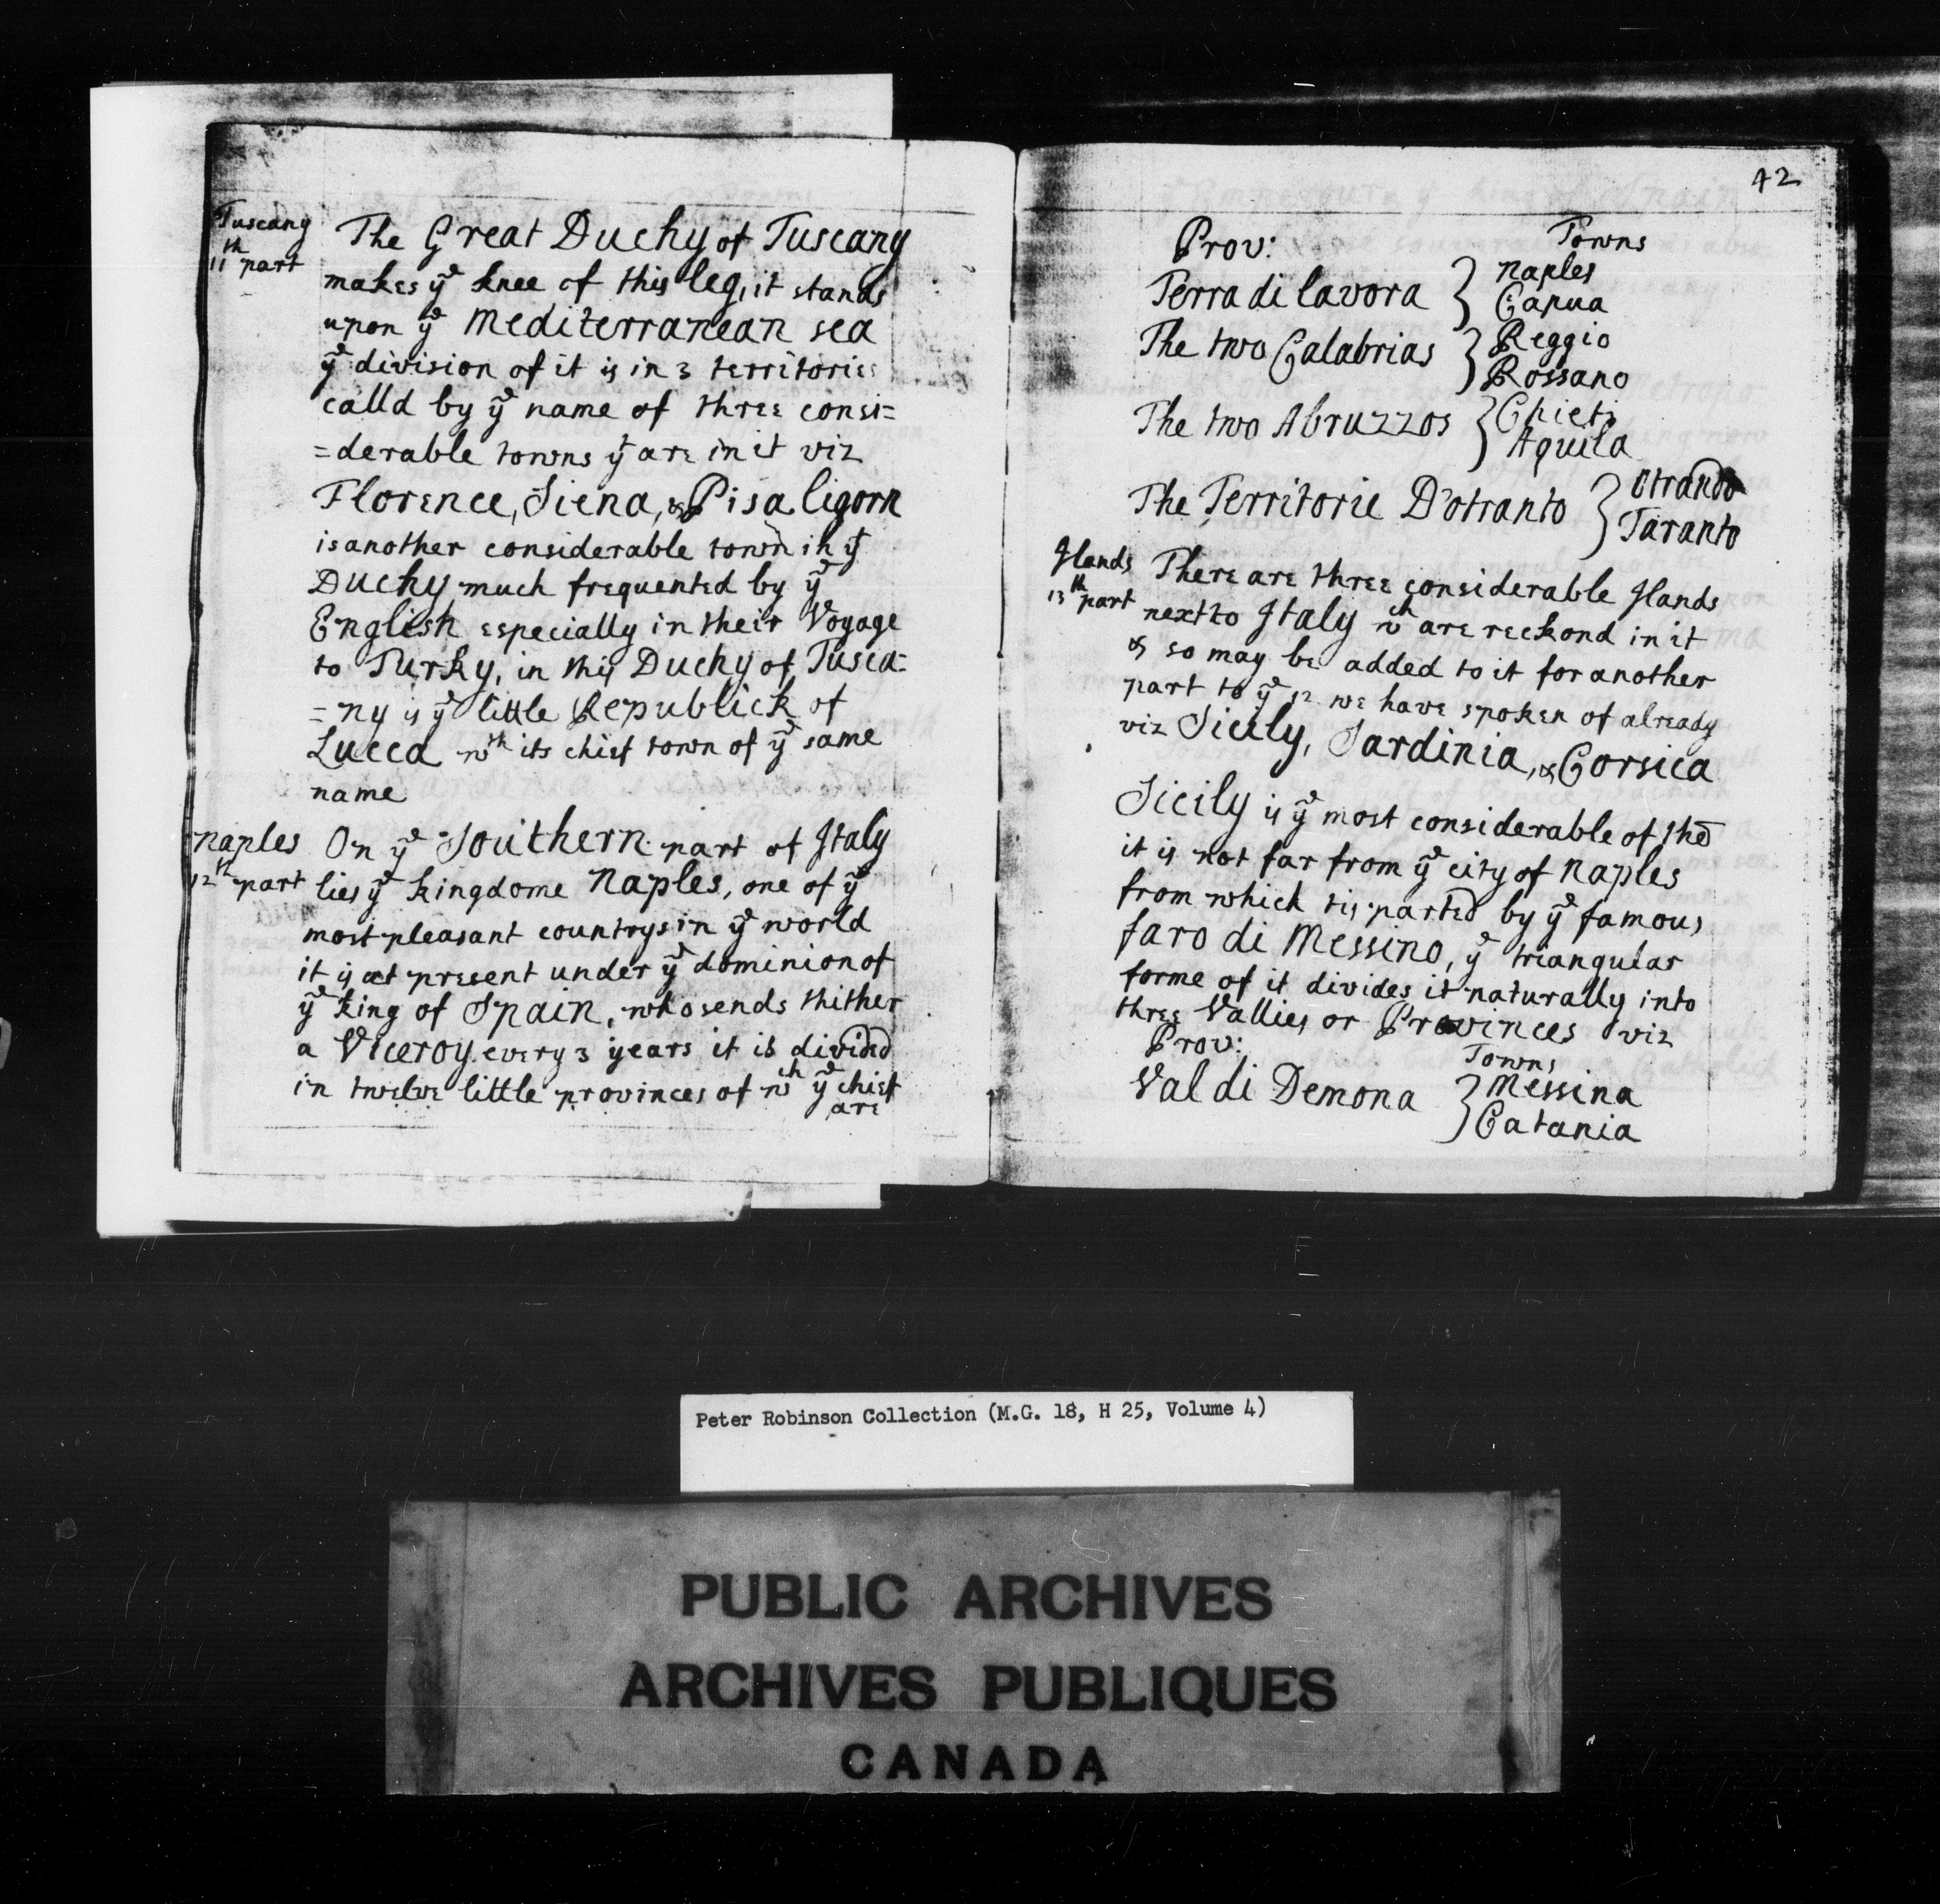 Tuscany
11th part
The Great Duchy of Tuscany
makes ye knee of this leg, it stands
upon ye Mediterranean sea
ye division of it is in 3 territories
calld by ye name of three consi=
=derable towns yt are in it viz
Florence, Siena, & Pisa ligorn
is another considerable town in ys
Duchy much frequented by ye
English especially in their Voyage
to Turky, in this Duchy of Tusca=
=ny is ye little Republick of
Lucca wth its chief town of ye same
name
naples
12th part
On ye Southern part of Italy
lies ye kingdome Naples, one of ye
most pleasant countrys in ye world
it is at present under ye dominion of
ye king of Spain, who sends thither
a Viceroy every 3 years it is divided
in twelve little provinces of wch ye chief
are
42
Prov: Towns
Terra di lavora } naples
Capua
The two Calabrias } Reggio
Rossano
The two Abruzzos } Chieti
Aquila
The Territorie D'otranto } Otrando
Taranto
Ilands
13th part
There are three considerable Ilands
next to Italy wch are reckond in it
& so may be added to it for another
part to ye 12 we have spoken of already
viz Sicily, Sardinia, & Corsica
Sicily is ye most considerable of thē
it is not far from ye city of Naples
from which tis parted by ye famous
faro di Messino, ye triangular
forme of it divides it naturally into
three Vallies or Provinces viz
Prov: Towns
Val di Demona } Messina
Catania
Peter Robinson Collection (M.G. 18, H 25, Volume 4)
PUBLIC ARCHIVES
ARCHIVES PUBLIQUES
CANADA